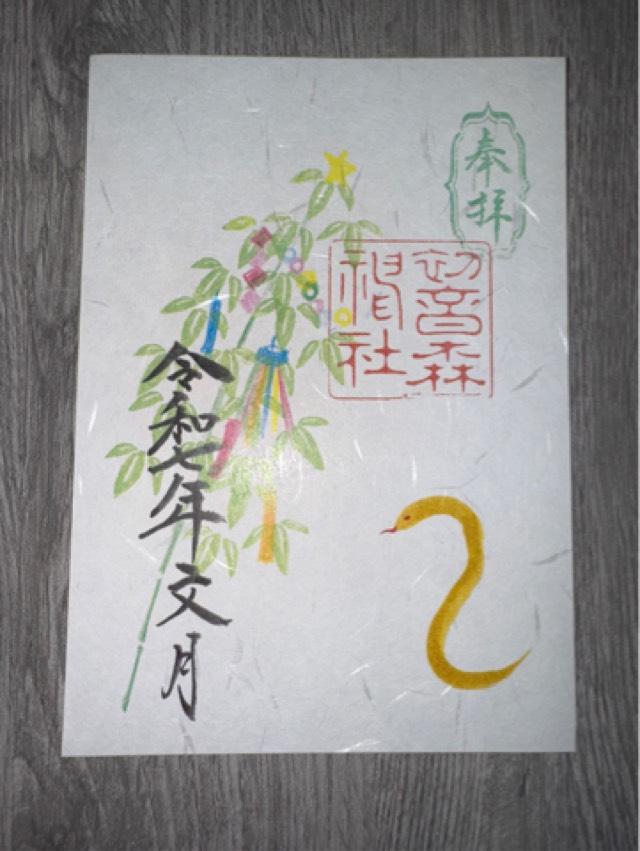 奉拝
初音森
神社
令和七年文月